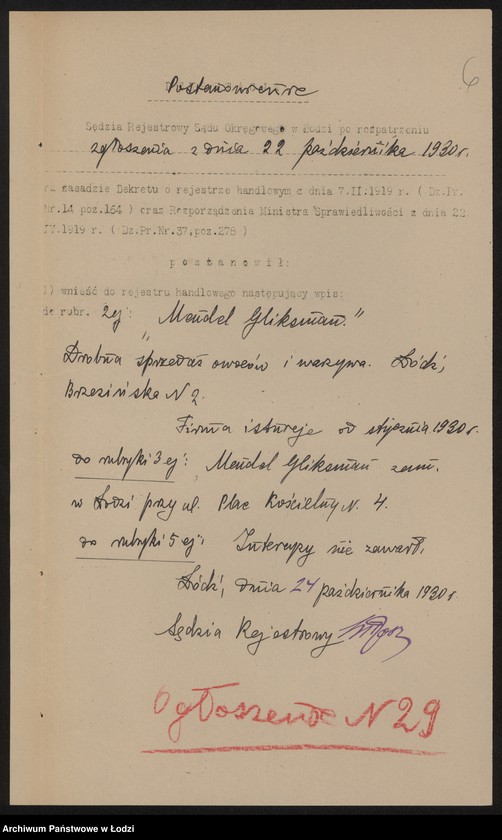 6
Postanowienie
Sędzia Rejestrowy Sądu Okręgowego w Łodzi po rozpatrzeniu
zgłoszenia z dnia 22 października 1930 r.
na zasadzie Dekretu o rejestrze handlowym z dnia 7.II.1919 r. ( Dz.Pr.
Nr.14 poz.164 ) oraz Rozporządzenia Ministra Sprawiedliwości z dnia 22
IV.1919 r. ( Dz.Pr.Nr.37,poz.278 )
p o s t a n o w i ł :
1) wnieść do rejestru handlowego następujący wpis:
do rubr. 2ej: „Mendel Gliksman."
Drobna sprzedaż owoców i warzywa. Łódź,
Brzezińska N 2.
Firma istnieje od stycznia 1930 r.
do rubryki 3 ej: Mendel Gliksman zam.
w Łodzi przy ul. Plac Kościelny N. 4.
do rubryki 5 ej: Intercyzy nie zawarł.
Łódź, dnia 24 października 1930 r
Sędzia Rejestrowy
Ogłoszenie N 29
Archiwum Państwowe w Łodzi